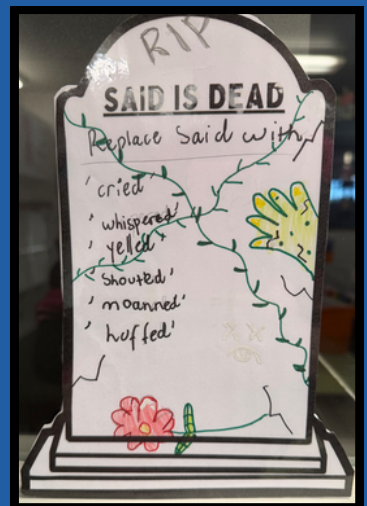 RIP
SAID IS DEAD
Replace Said with
'cried'
'whispered'
'yelled'
'shouted'
'moanned'
'huffed'